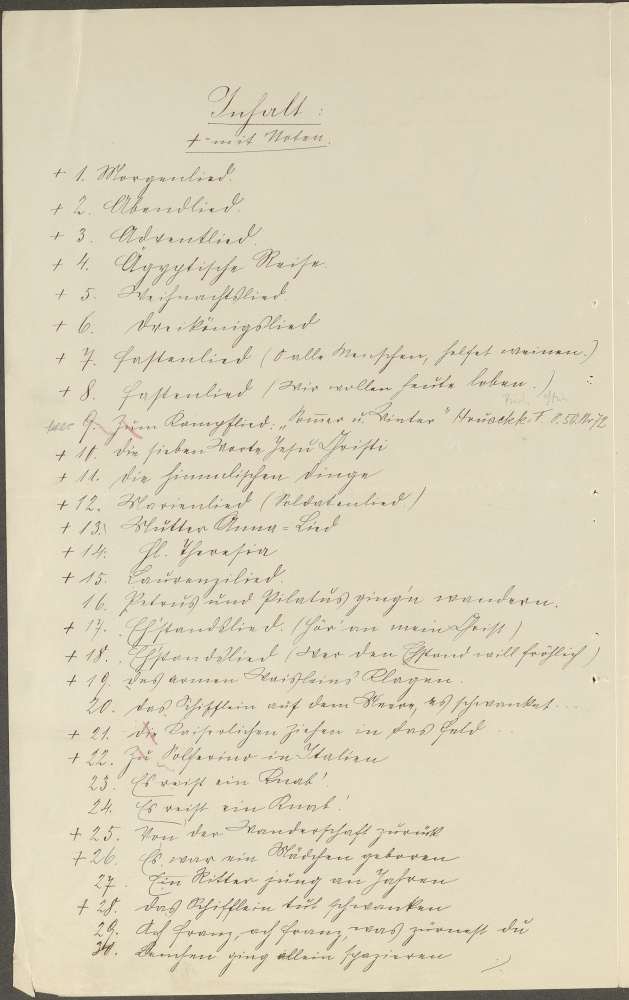 Inhalt:
+ = mit Noten.
+ 1. Morgenlied.
+ 2. Abendlied.
+ 3. Adventlied.
+ 4. Ägyptische Reise.
+ 5. Weihnachtslied.
+ 6. Dreikönigslied
+ 7. Fastenlied (O alle Menschen, helfet weinen.)
+ 8. Fastenlied (Wir wollen heute loben.)
9. Zum Kampflied: „Sommer u. Winter" Hruschk. I. S. 50. Nr 72
+ 10. Die sieben Worte Jesu Christi
+ 11. Die himmlischen Dinge
+ 12. Marienlied (Soldatenlied.)
+ 13. Mutter Anna=Lied
+ 14. Hl. Theresia
+ 15. Laurenzilied.
16. Petrus und Pilatus ging'n wandern.
+ 17. Eh'standslied. (Hör' an mein Christ)
+ 18. Eh'standslied (Wer den Eh'stand will fröhlich)
+ 19. Des armen Waisleins Klagen.
20. Das Schifflein auf dem Meere, es schwanket...
+ 21. Die Kaiserlichen ziehen in das Feld ..
+ 22. Zu Solferino in Italien
23. Es reist ein Knab'!
24. Es reist ein Knab'!
+ 25. Von der Wanderschaft zurück
+ 26. Es war ein Mädchen geboren
27. Ein Ritter jung an Jahren
+ 28. Das Schifflein tut schwanken
29. Ach Franz, ach Franz, was zürnest du
30. Lenchen ging allein spazieren